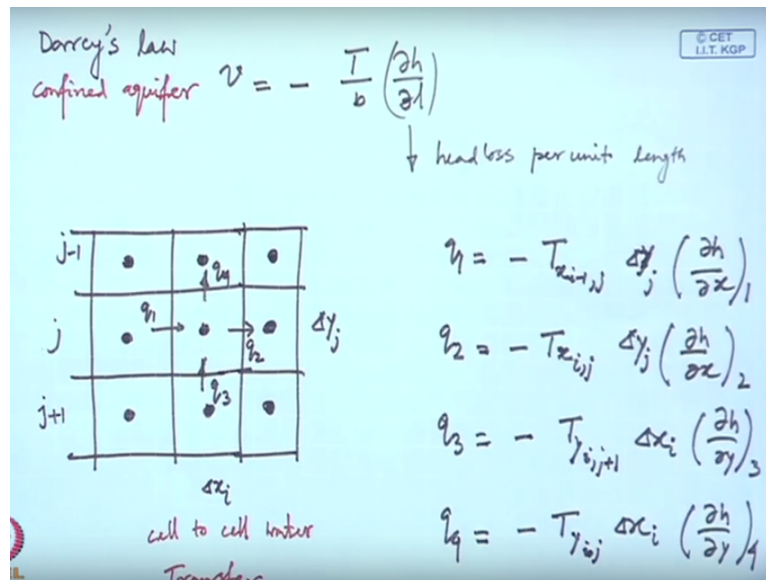 Darcy's law
confined aquifer v = - T/b (∂h/∂l)
↓ head loss per unit length
© CET
I.I.T. KGP
j-1
q4
q1
j
q2
Δyj
q3
j+1
Δxi
cell to cell water
Transfer
q1 = - Tx i-1,j Δyj (∂h/∂x)1
q2 = - Tx i,j Δyj (∂h/∂x)2
q3 = - Ty i,j+1 Δxi (∂h/∂y)3
q4 = - Ty i,j Δxi (∂h/∂y)4